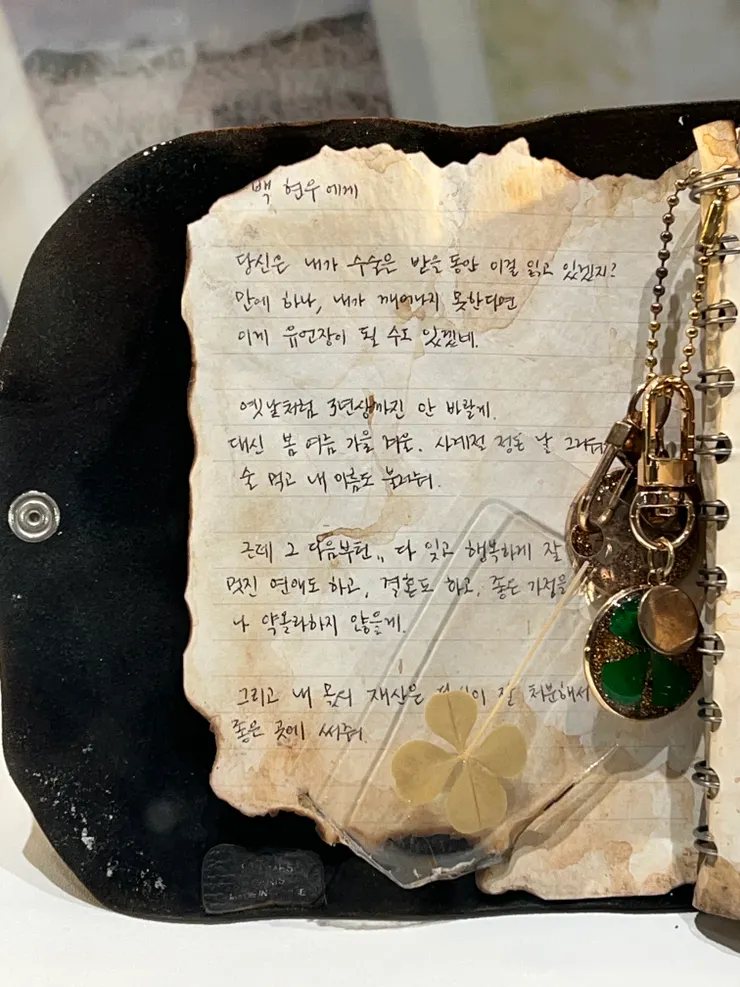 백 현우에게
당신은 내가 수술은 받을 동안 이걸 읽고 있겠지?
만에 하나, 내가 깨어나지 못한다면
이게 유언장이 될 수도 있겠네.
옛날처럼 3년상까진 안 바랄게.
대신 봄 여름 가을 겨울. 사계절 정돈 날 그리워
술 먹고 내 이름도 불러줘.
근데 그 다음부턴,, 다 잊고 행복하게 잘
멋진 연애도 하고, 결혼도 하고, 좋은 가정을
나 약올라하지 않을게.
그리고 내 몫의 재산은 잘 처분해서
좋은 곳에 써줘.